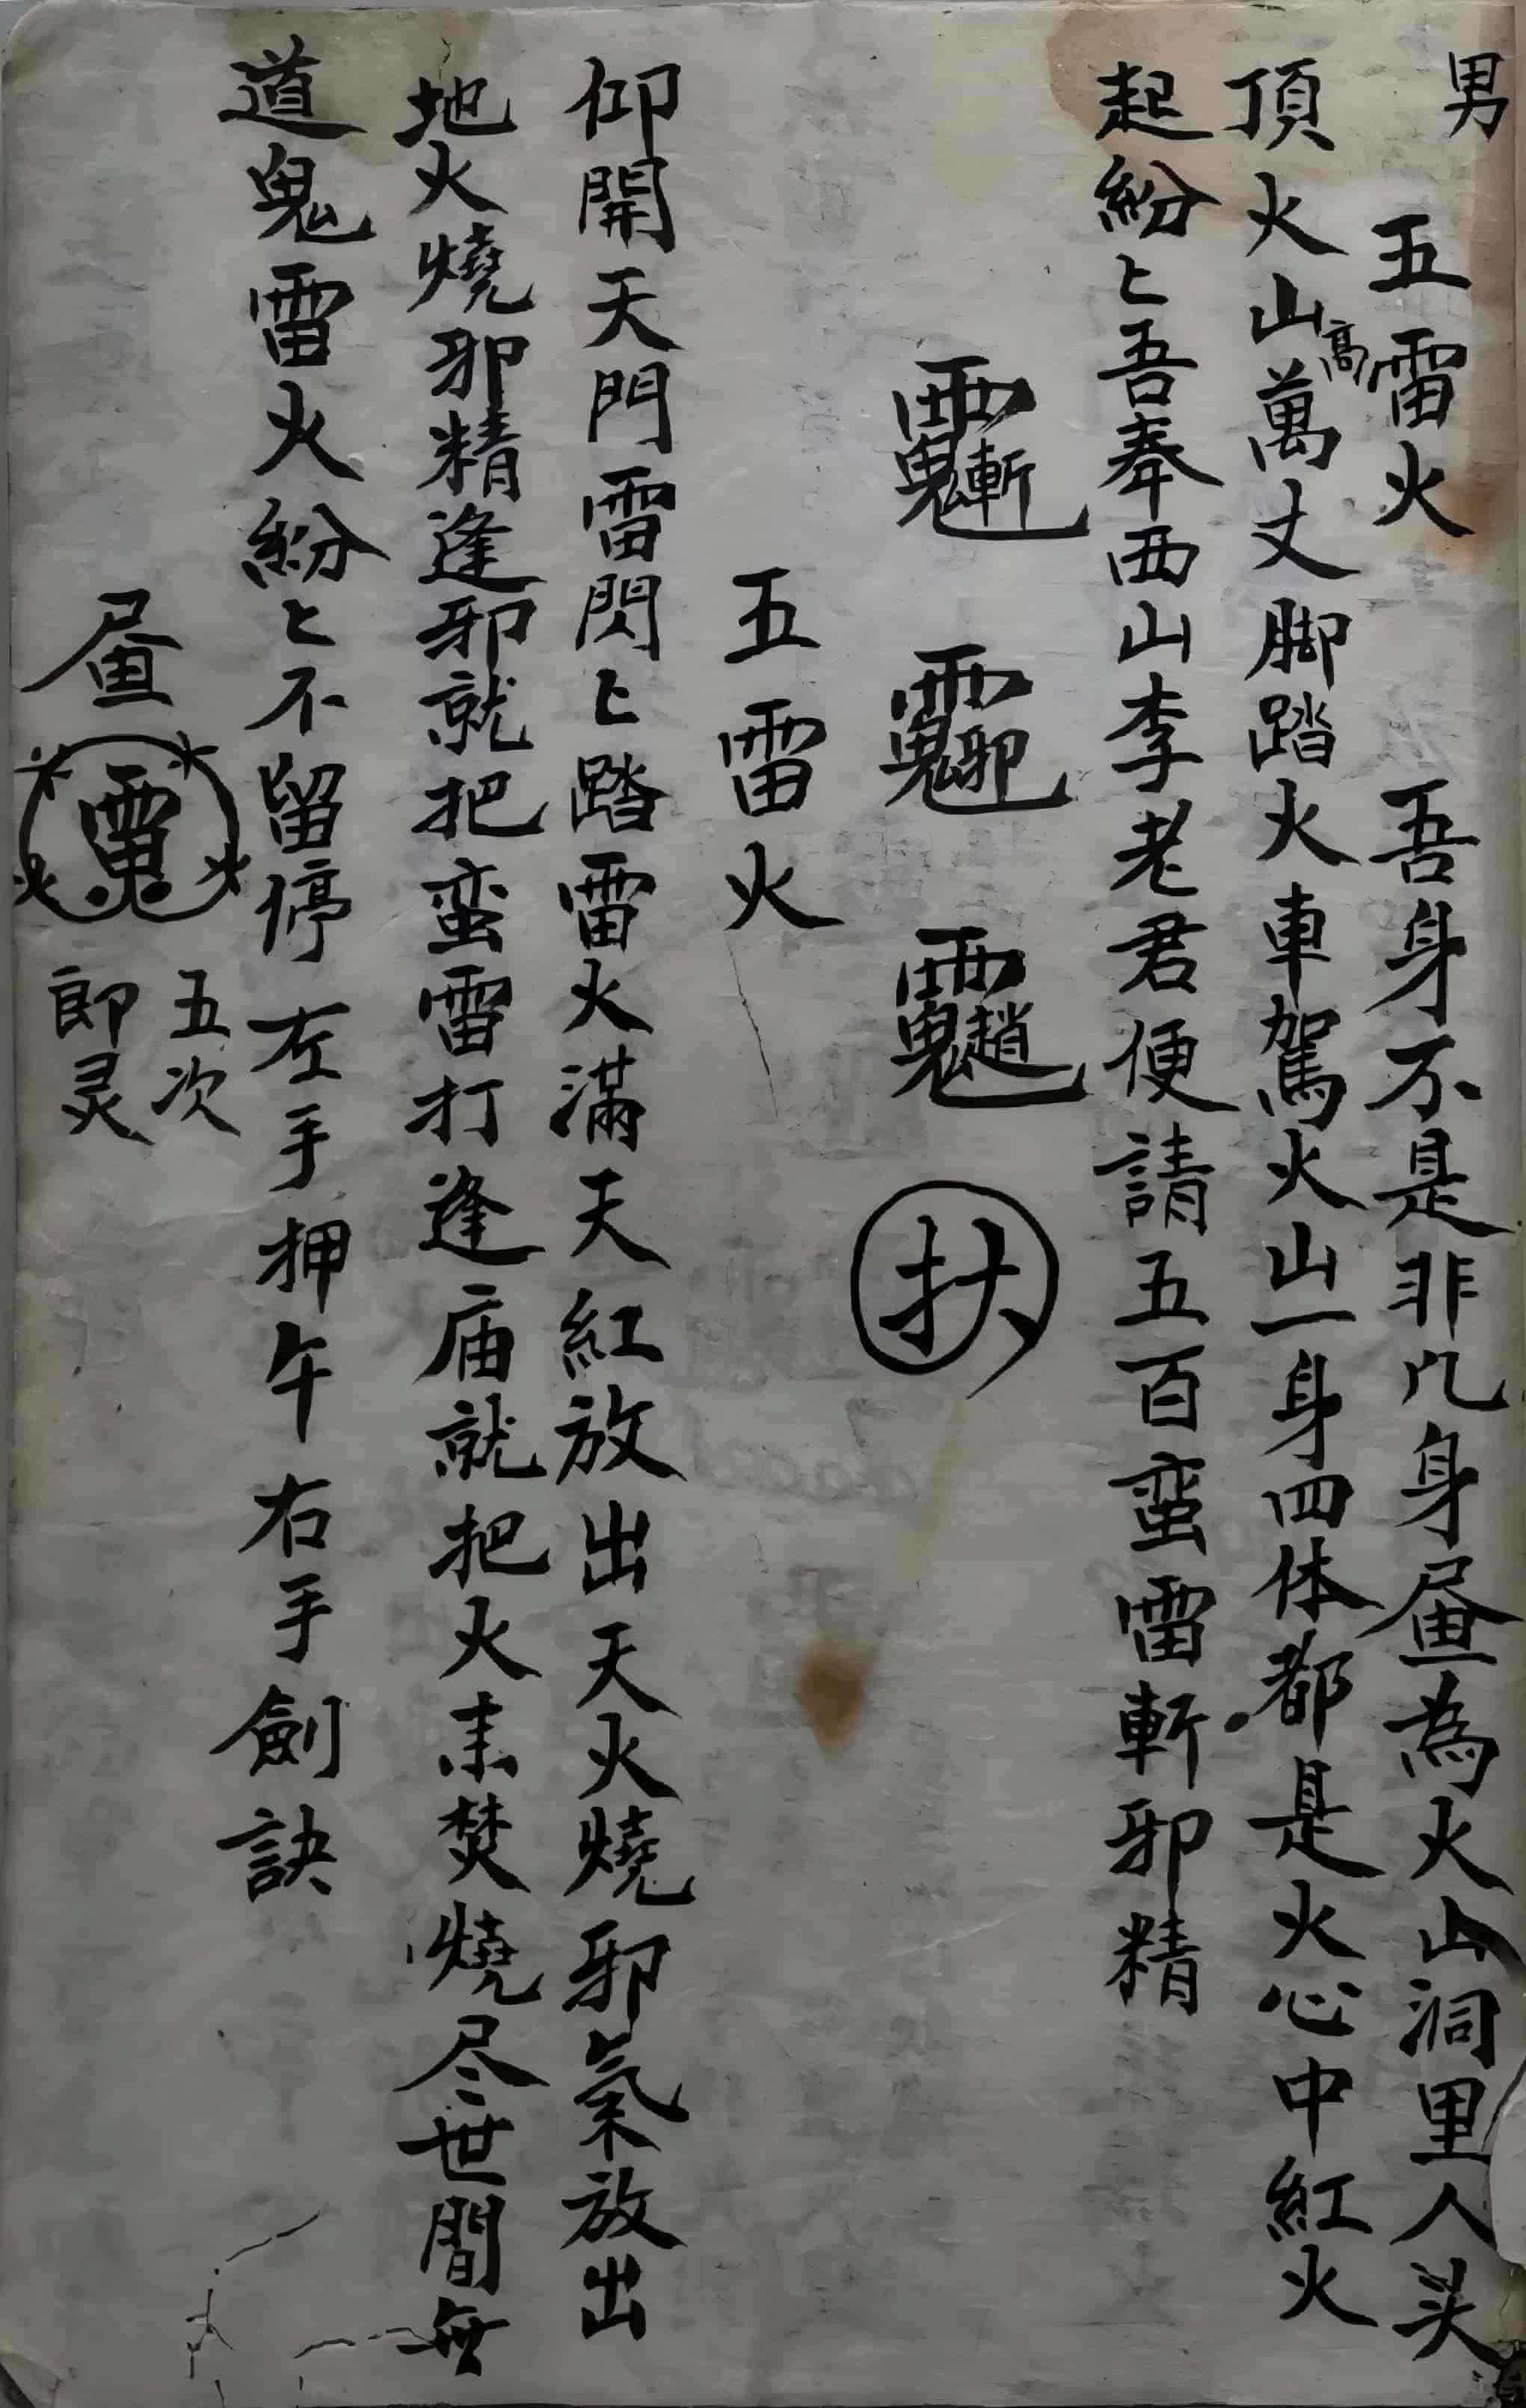 男
五雷火 吾身不是非凢身 為火山洞里人头
頂火山高萬丈脚踏火車駕火山一身四体都是火心中紅火
起紛〻吾奉西山李老君便請五百蛮雷斬邪精
扶
五雷火
仰開天門雷閃〻踏雷火滿天紅放出天火燒邪氣放出
地火燒邪精逢邪就把蛮雷打逢庙就把火来焚燒尽世間無
道鬼雷火紛〻不留停 左手押午右手劍訣
五次
即灵